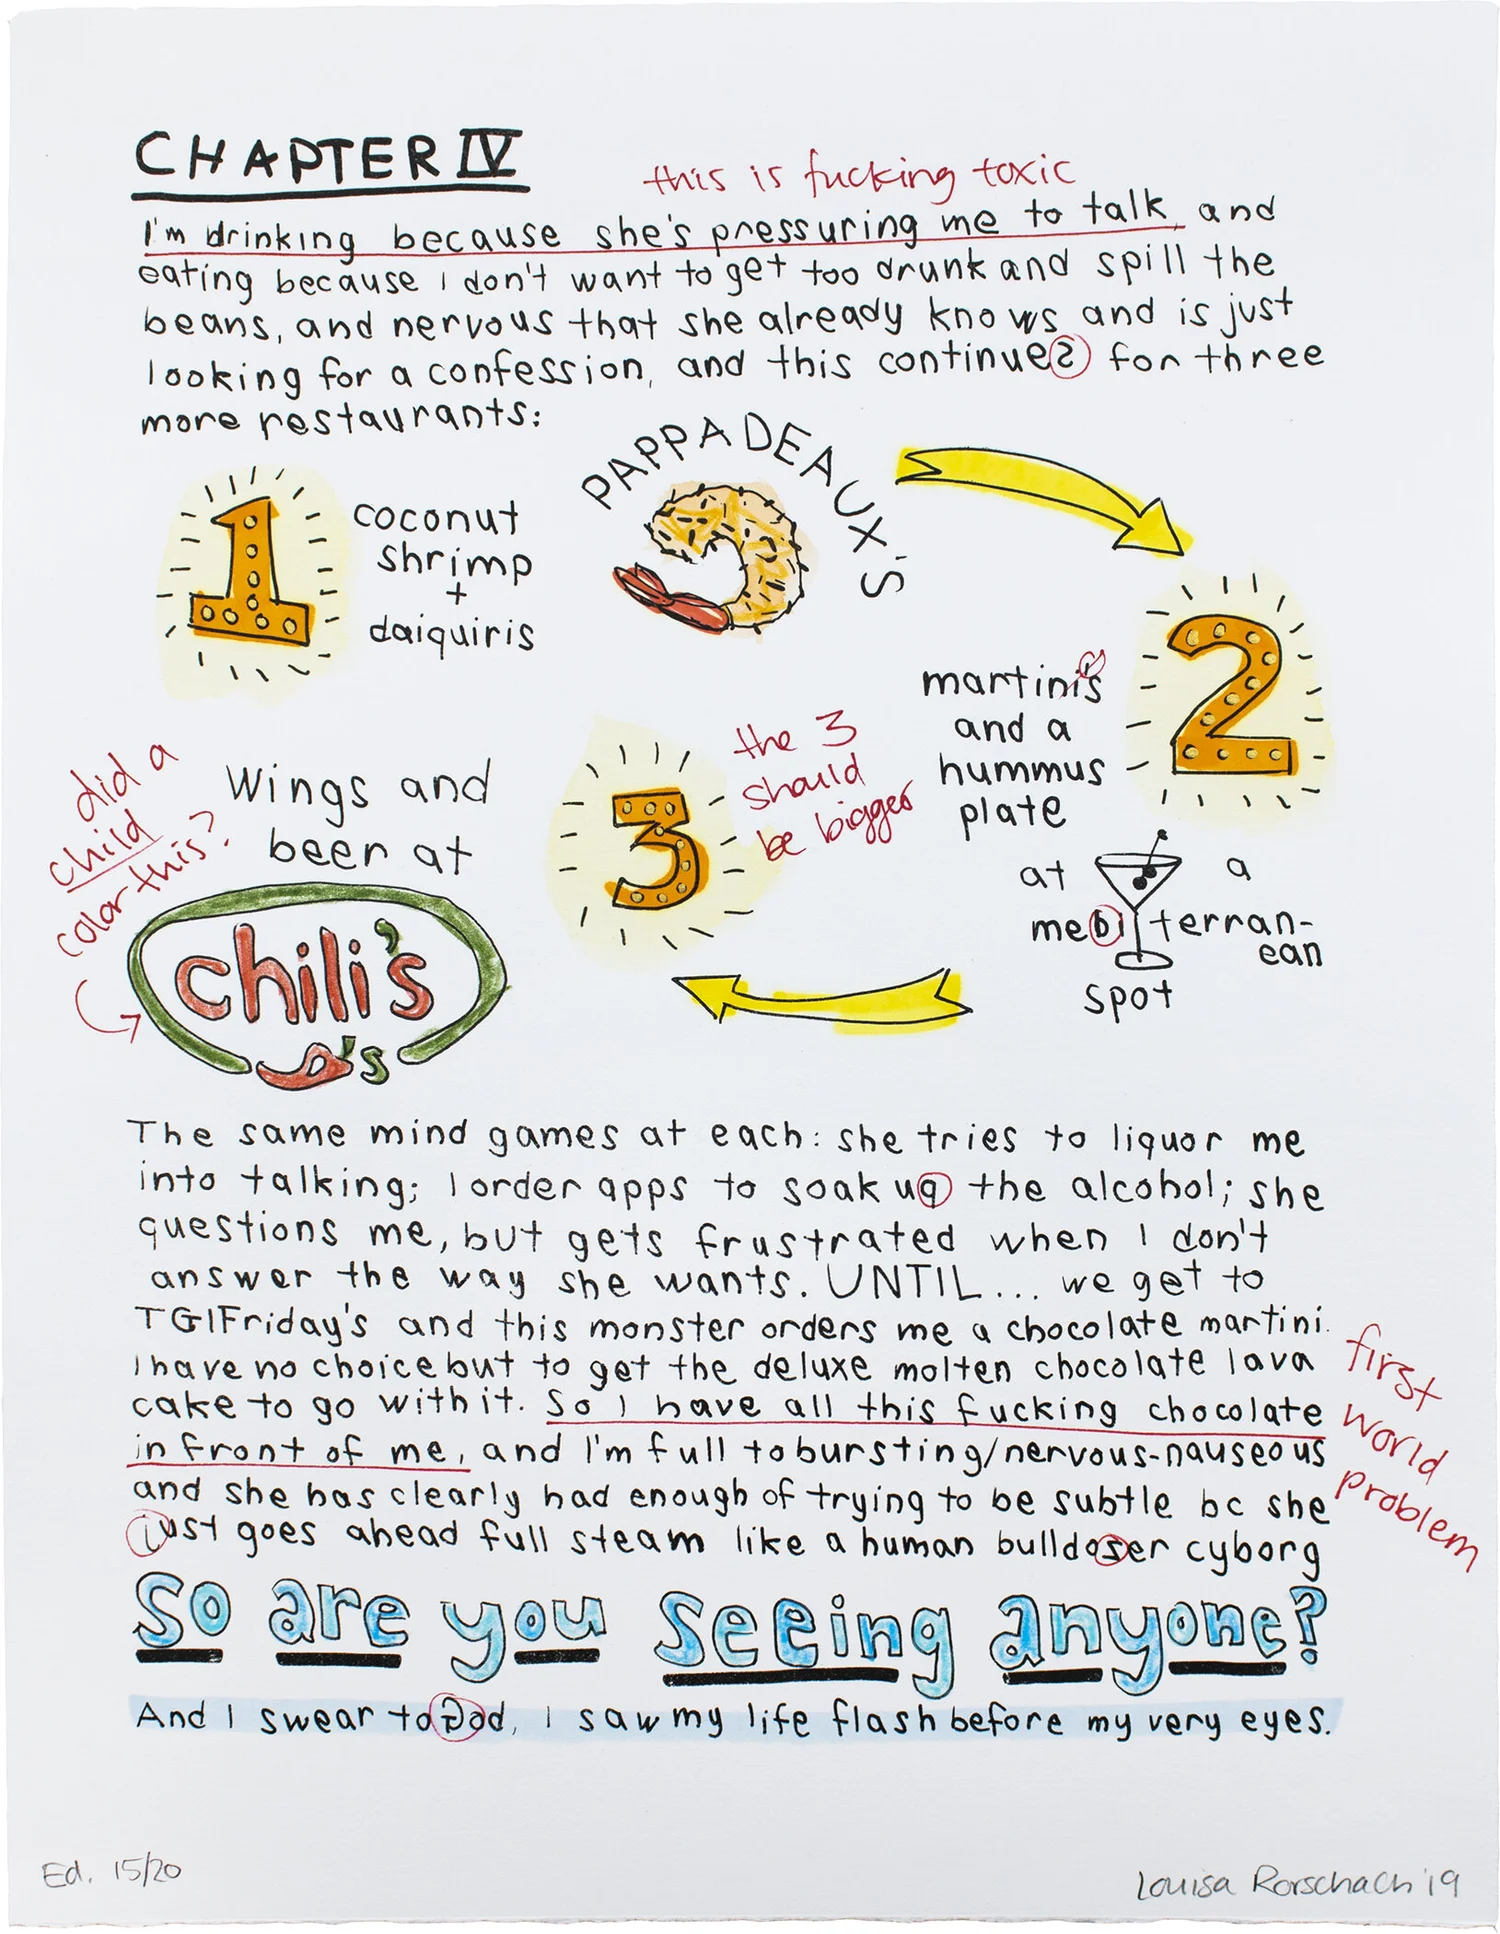 CHAPTER IV
this is fucking toxic
I'm drinking because she's pressuring me to talk, and
eating because I don't want to get too drunk and spill the
beans, and nervous that she already knows and is just
looking for a confession, and this continues for three
more restaurants:
1
coconut
shrimp
+
daiquiris
PAPPADEAUX'S
2
martini's
and a
hummus
plate
at a
mediterran-
ean
spot
3
the 3
should
be bigger
Wings and
beer at
chili's
's
did a
child
color this?
The same mind games at each: she tries to liquor me
into talking; I order apps to soak up the alcohol; she
questions me, but gets frustrated when I don't
answer the way she wants. UNTIL... we get to
TGIFriday's and this monster orders me a chocolate martini.
I have no choice but to get the deluxe molten chocolate lava
cake to go with it. So I have all this fucking chocolate
in front of me, and I'm full to bursting/nervous-nauseous
and she has clearly had enough of trying to be subtle bc she
just goes ahead full steam like a human bulldoser cyborg
first
world
problem
So are you seeing anyone?
And I swear to God, I saw my life flash before my very eyes.
Ed. 15/20
Louisa Rorschach '19